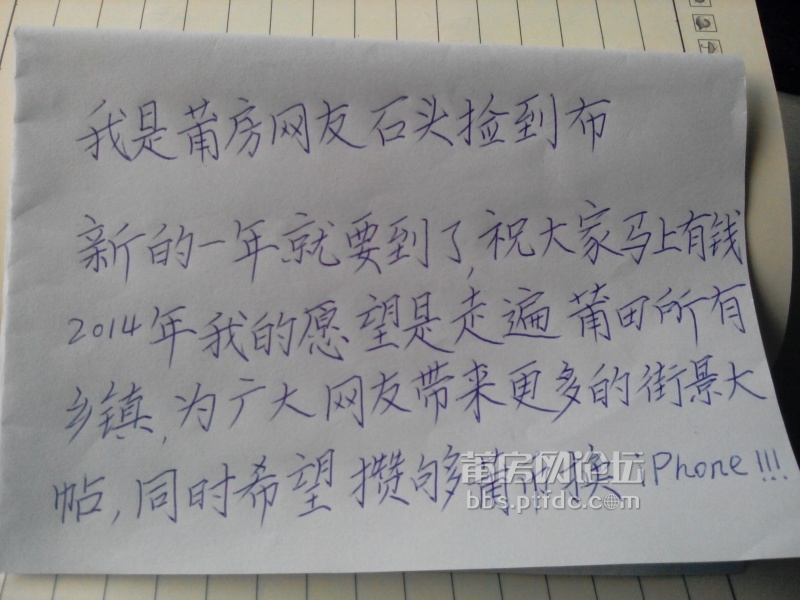 我是莆房网友石头捡到布
新的一年就要到了,祝大家马上有钱
2014年我的愿望是走遍莆田所有
乡镇,为广大网友带来更多的街景大
帖,同时希望攒够莆币换iPhone!!!
莆房网论坛
bbs.ptfdc.com